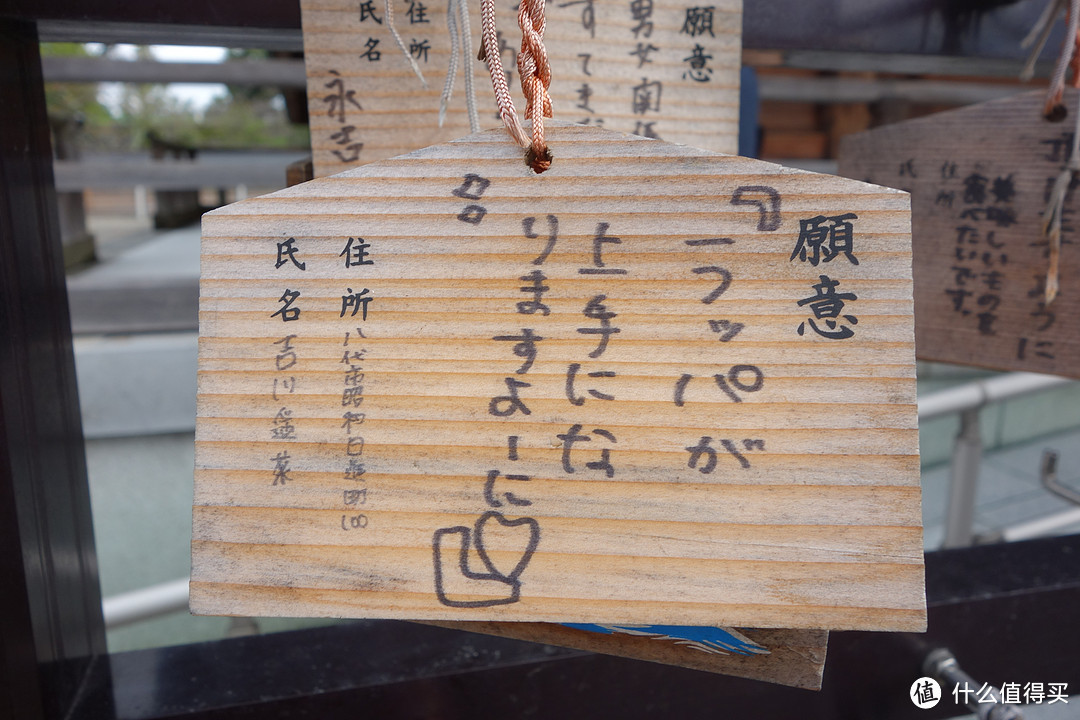 願意
男女関
すてま
住所
氏名 永吉
願意
『ラッパが
上手にな
りますよーに♡』
住所 八代市昭和日進町100
氏名 吉川遥菜
ように
美味しいものを
食べたいです。
住所
氏
值 什么值得买